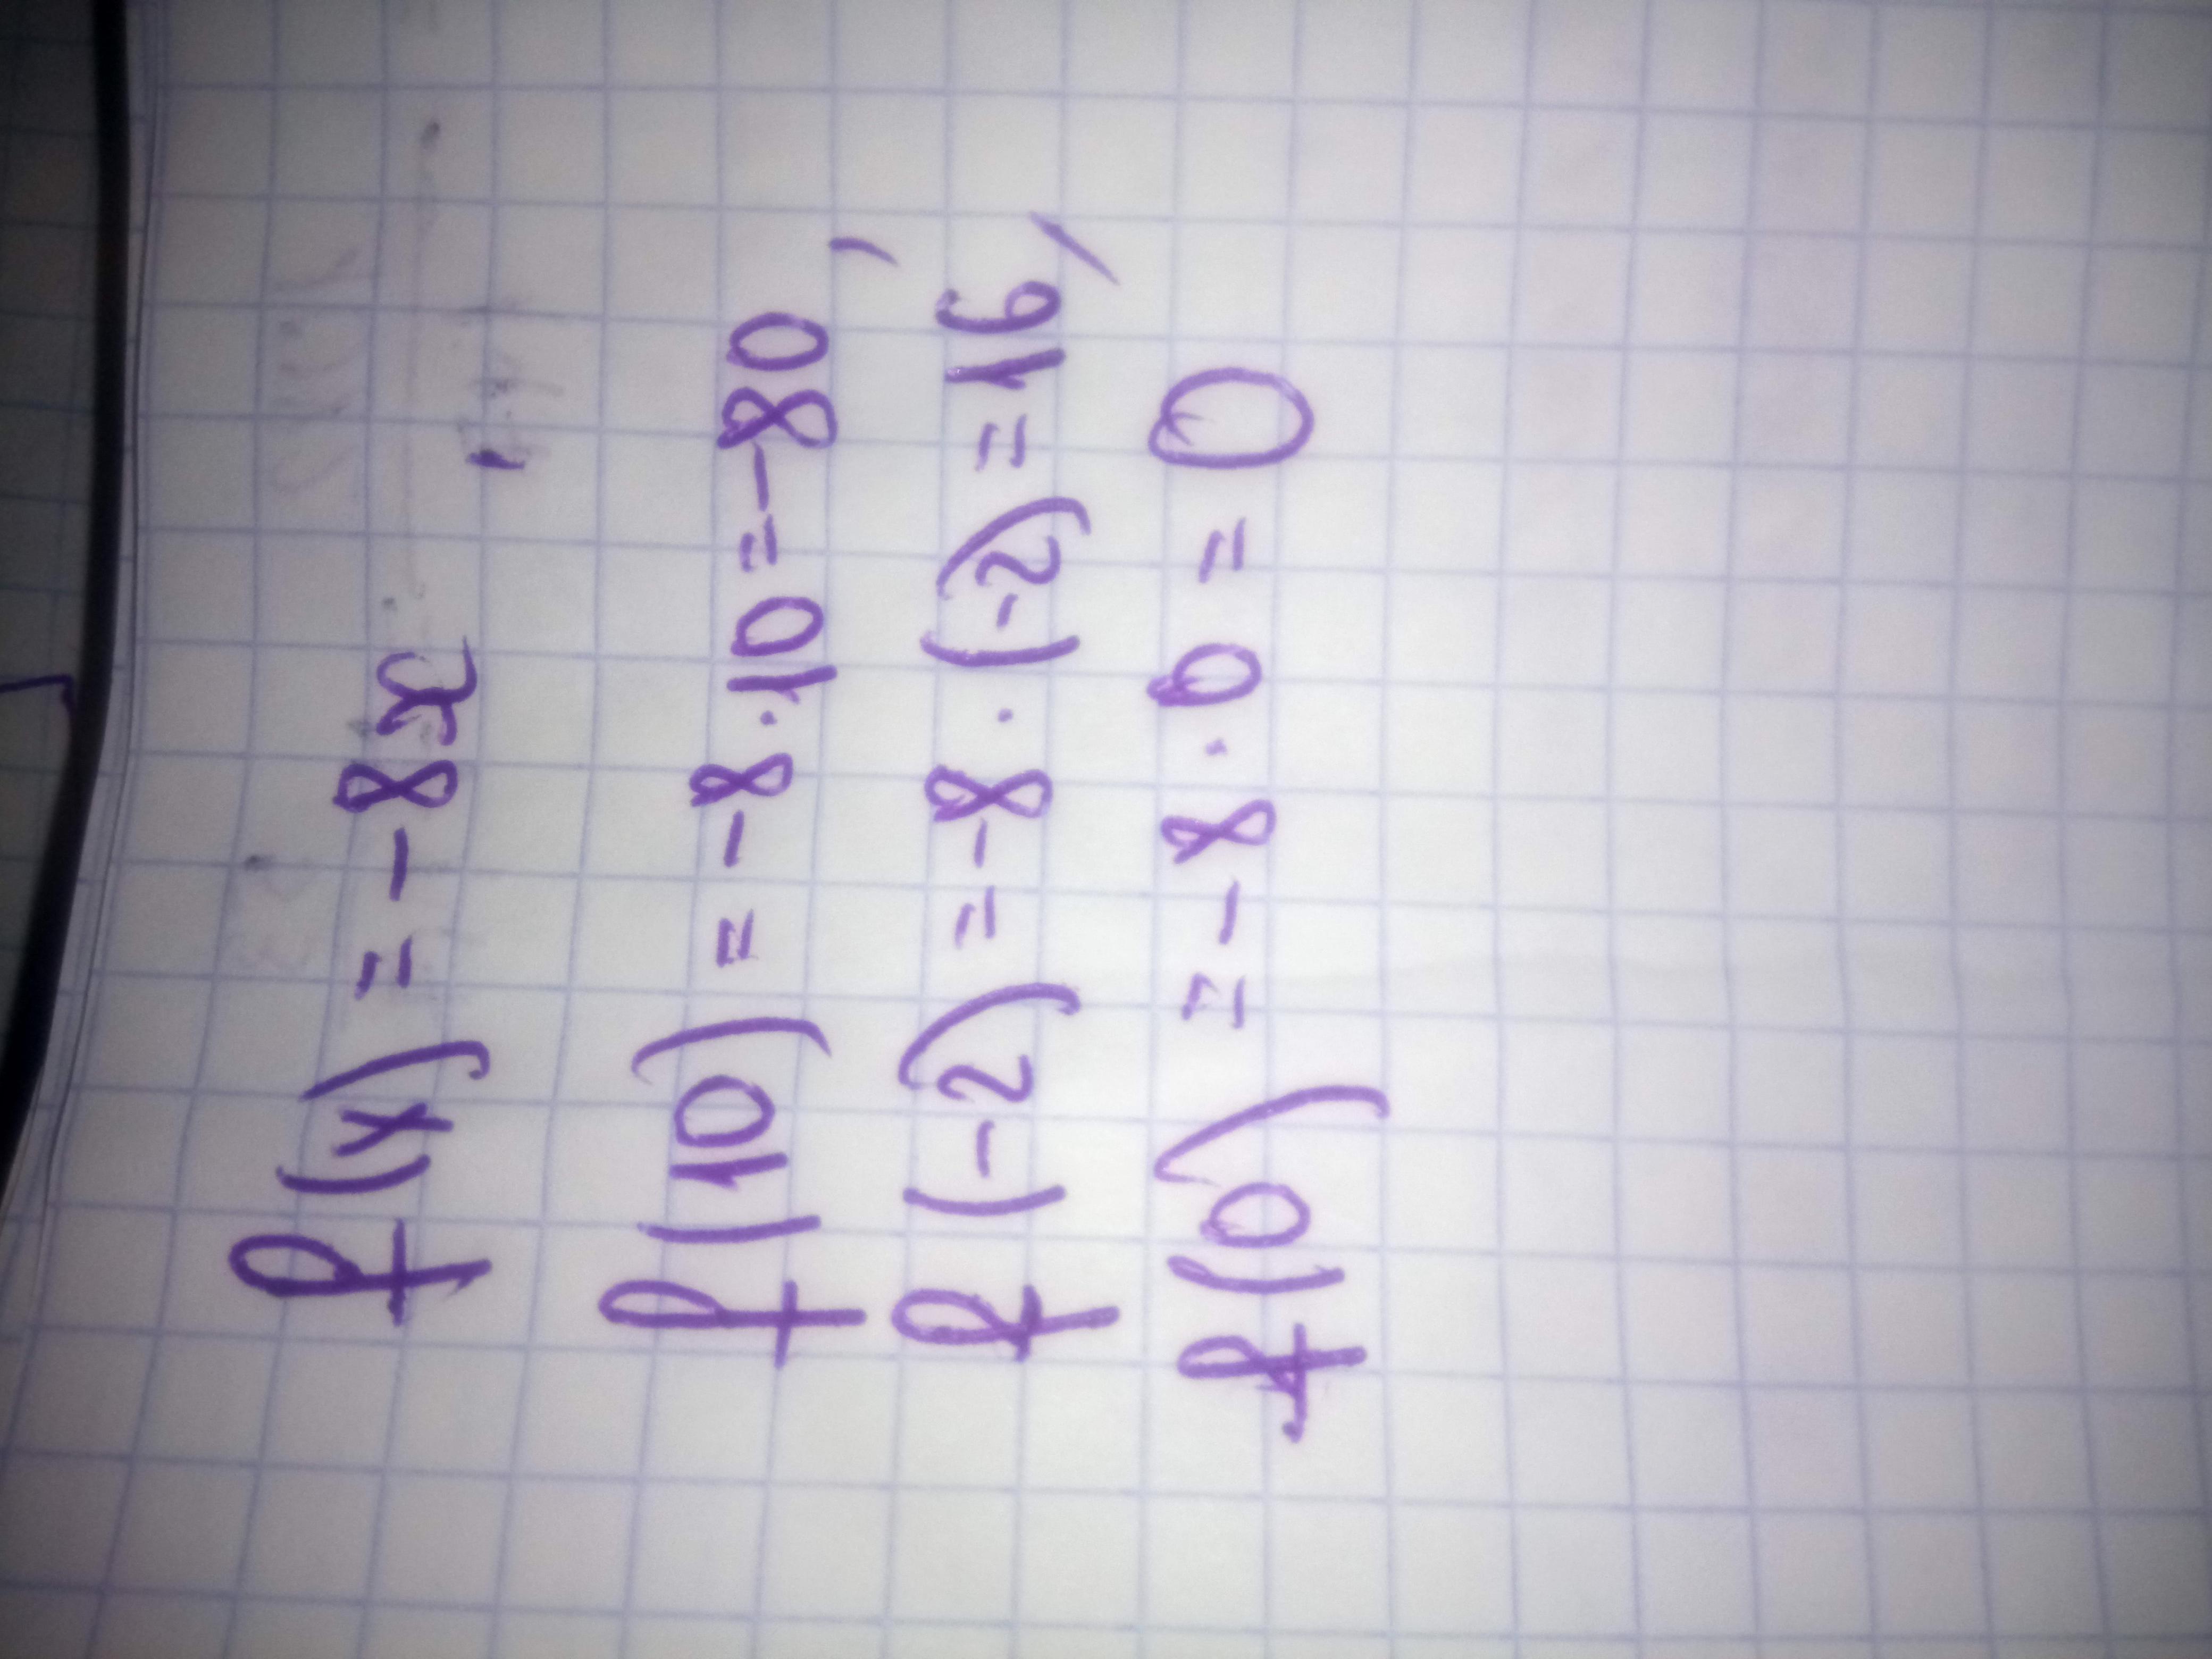 f(x) = - 8x
f(10) = - 8 · 10 = - 80,
f(-2) = - 8 · (-2) = 16,
f(0) = - 8 · 0 = 0